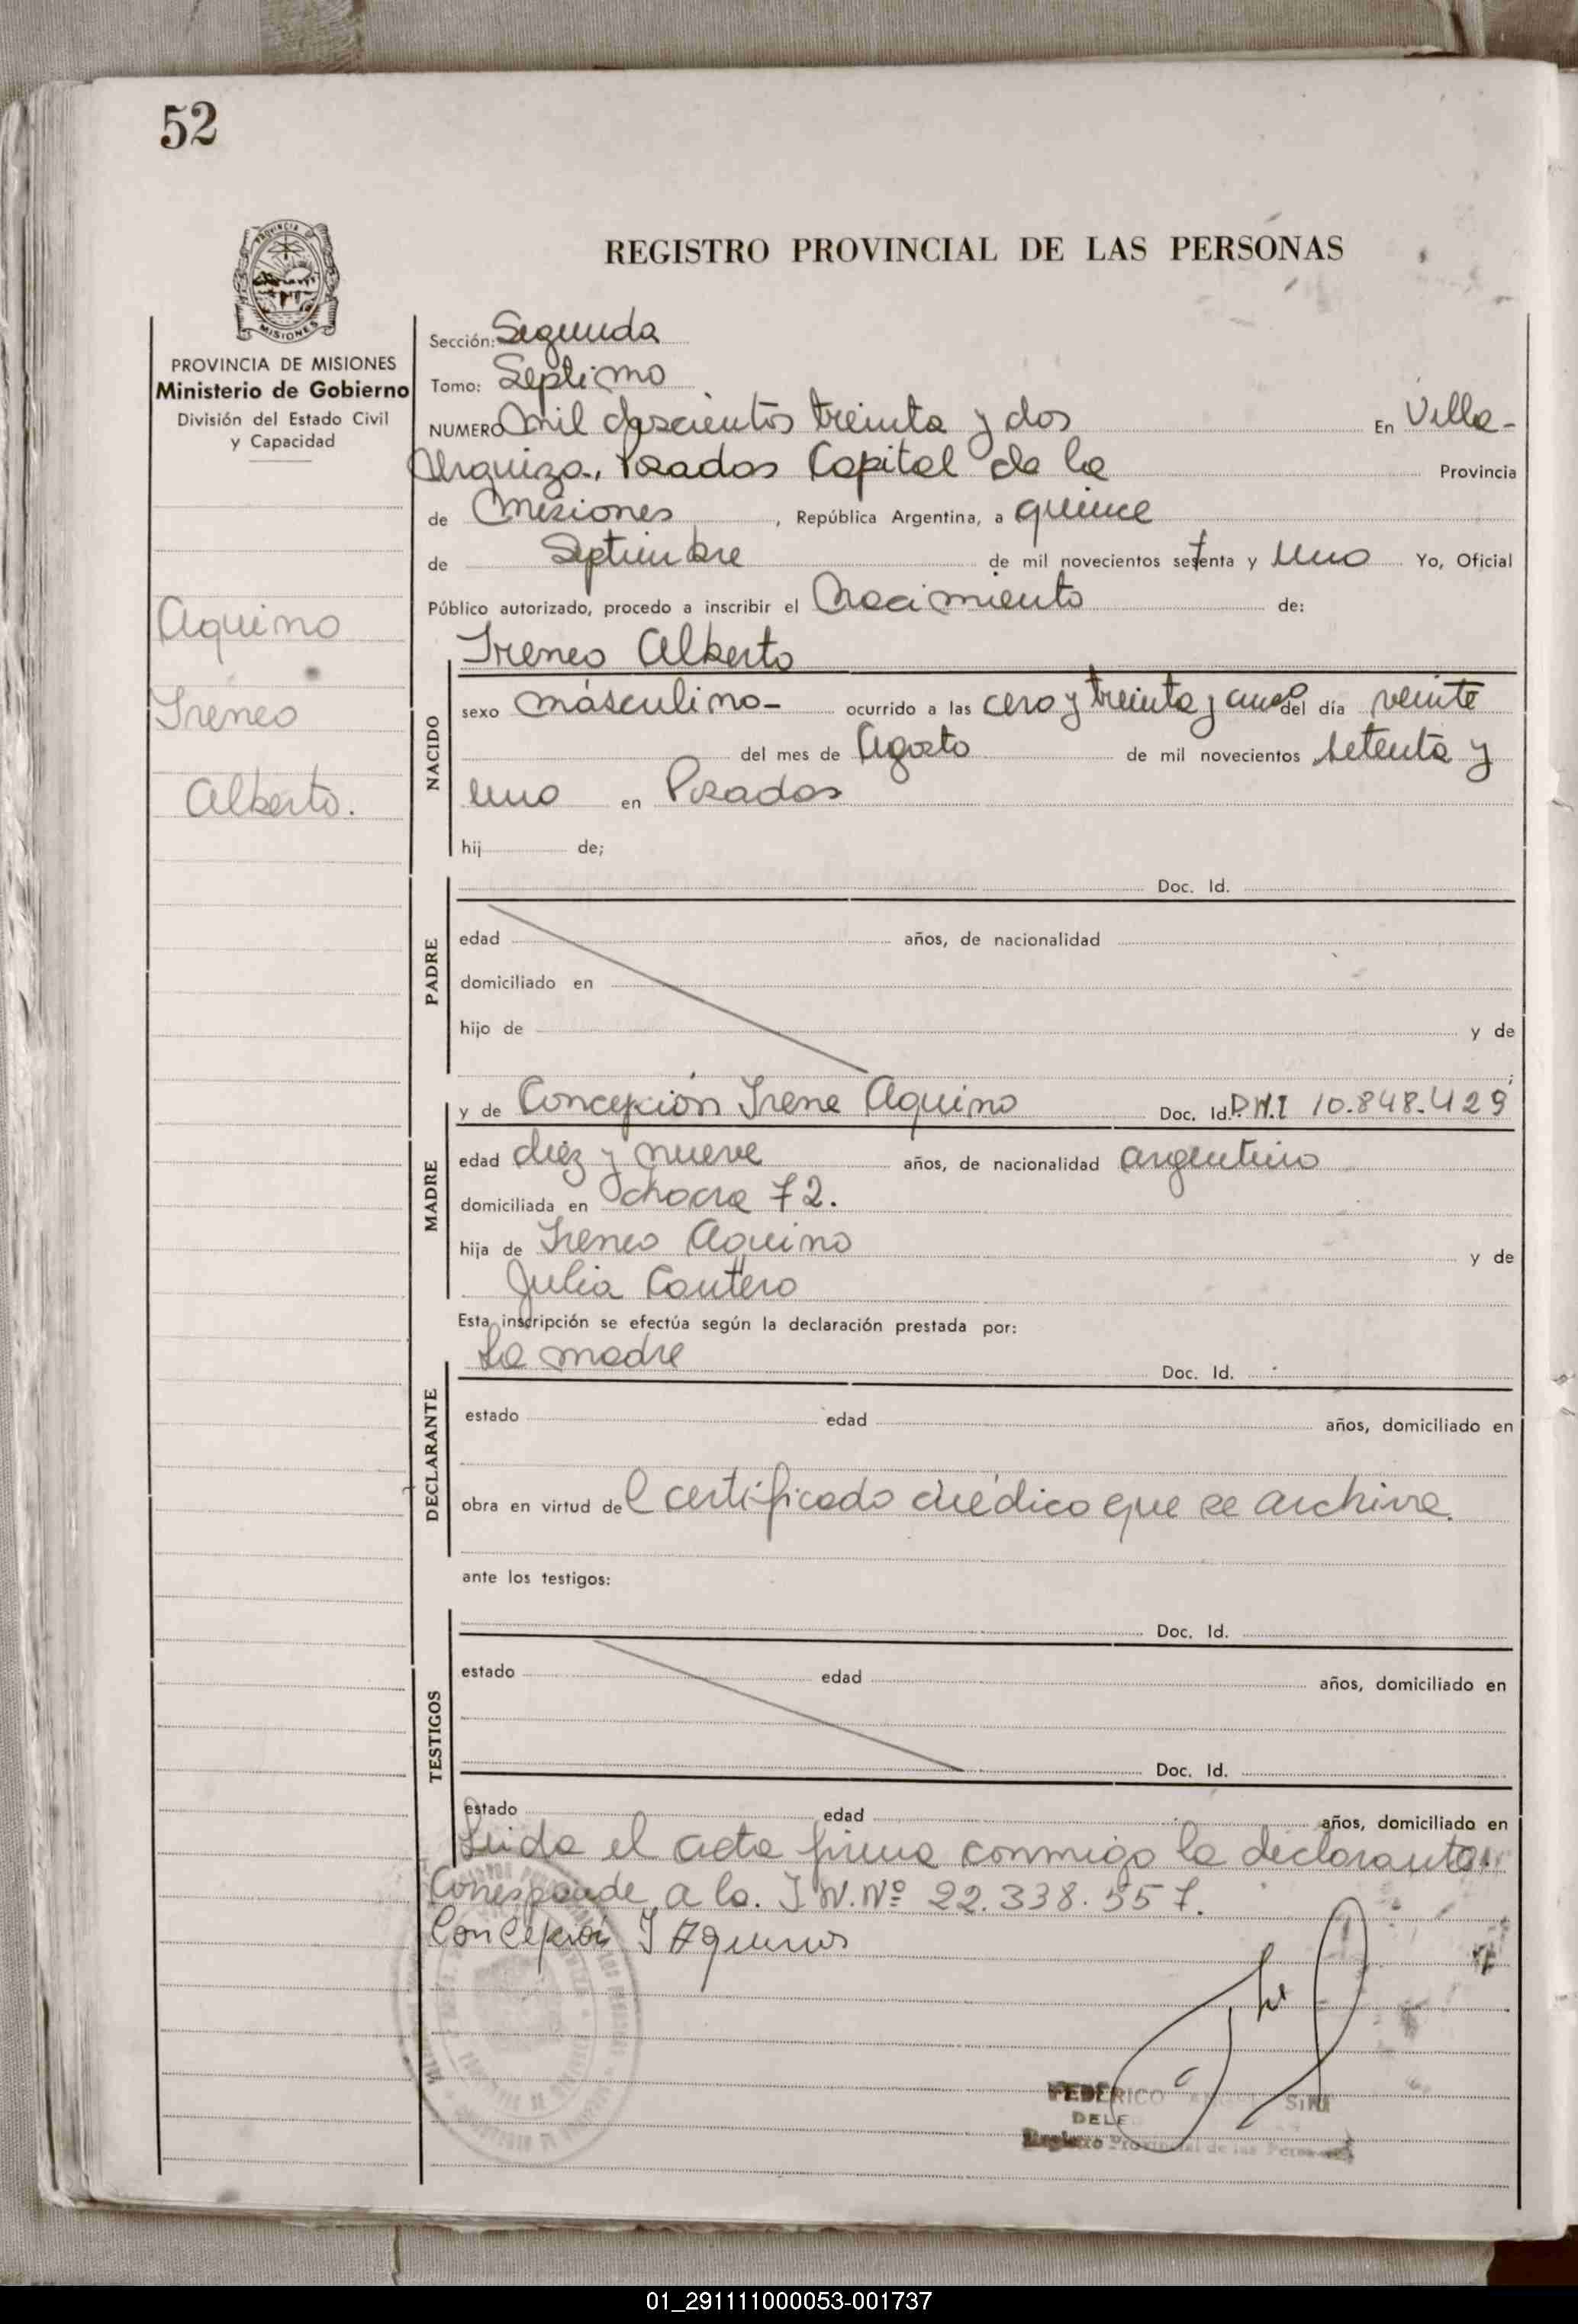 52
PROVINCIA DE MISIONES
Ministerio de Gobierno
División del Estado Civil
y Capacidad
Aquino
Ireneo
Alberto.
REGISTRO PROVINCIAL DE LAS PERSONAS
Sección: Segunda
Tomo: Septimo
NUMERO mil doscientos treinta y dos En Villa-
Urquiza, Posadas Capital de la Provincia
de Misiones, República Argentina, a quince
de Septiembre de mil novecientos setenta y uno Yo, Oficial
Público autorizado, procedo a inscribir el Nacimiento de:
NACIDO
Ireneo Alberto
sexo másculino- ocurrido a las cero y treinta y cinco del día veinte
del mes de Agosto de mil novecientos setenta y
uno en Posadas
hij de;
PADRE
Doc. Id.
edad años, de nacionalidad
domiciliado en
hijo de y de
MADRE
y de Concepción Irene Aquino Doc. Id. D.N.I 10.848.429
edad diez y nueve años, de nacionalidad argentino
domiciliada en chacra 72.
hija de Ireneo Aquino y de
Julia Cantero
Esta inscripción se efectúa según la declaración prestada por:
DECLARANTE
La madre Doc. Id.
estado edad años, domiciliado en
obra en virtud del certificado médico que se archiva.
ante los testigos:
TESTIGOS
Doc. Id.
estado edad años, domiciliado en
Doc. Id.
estado edad años, domiciliado en
Leida el acta firma conmigo la declarante.
Corresponde a la. I.N.Nº 22.338.557.
Concepción I Aquino
FEDERICO SIRI
DELE
Registro Provincial de las Personas
01_291111000053-001737